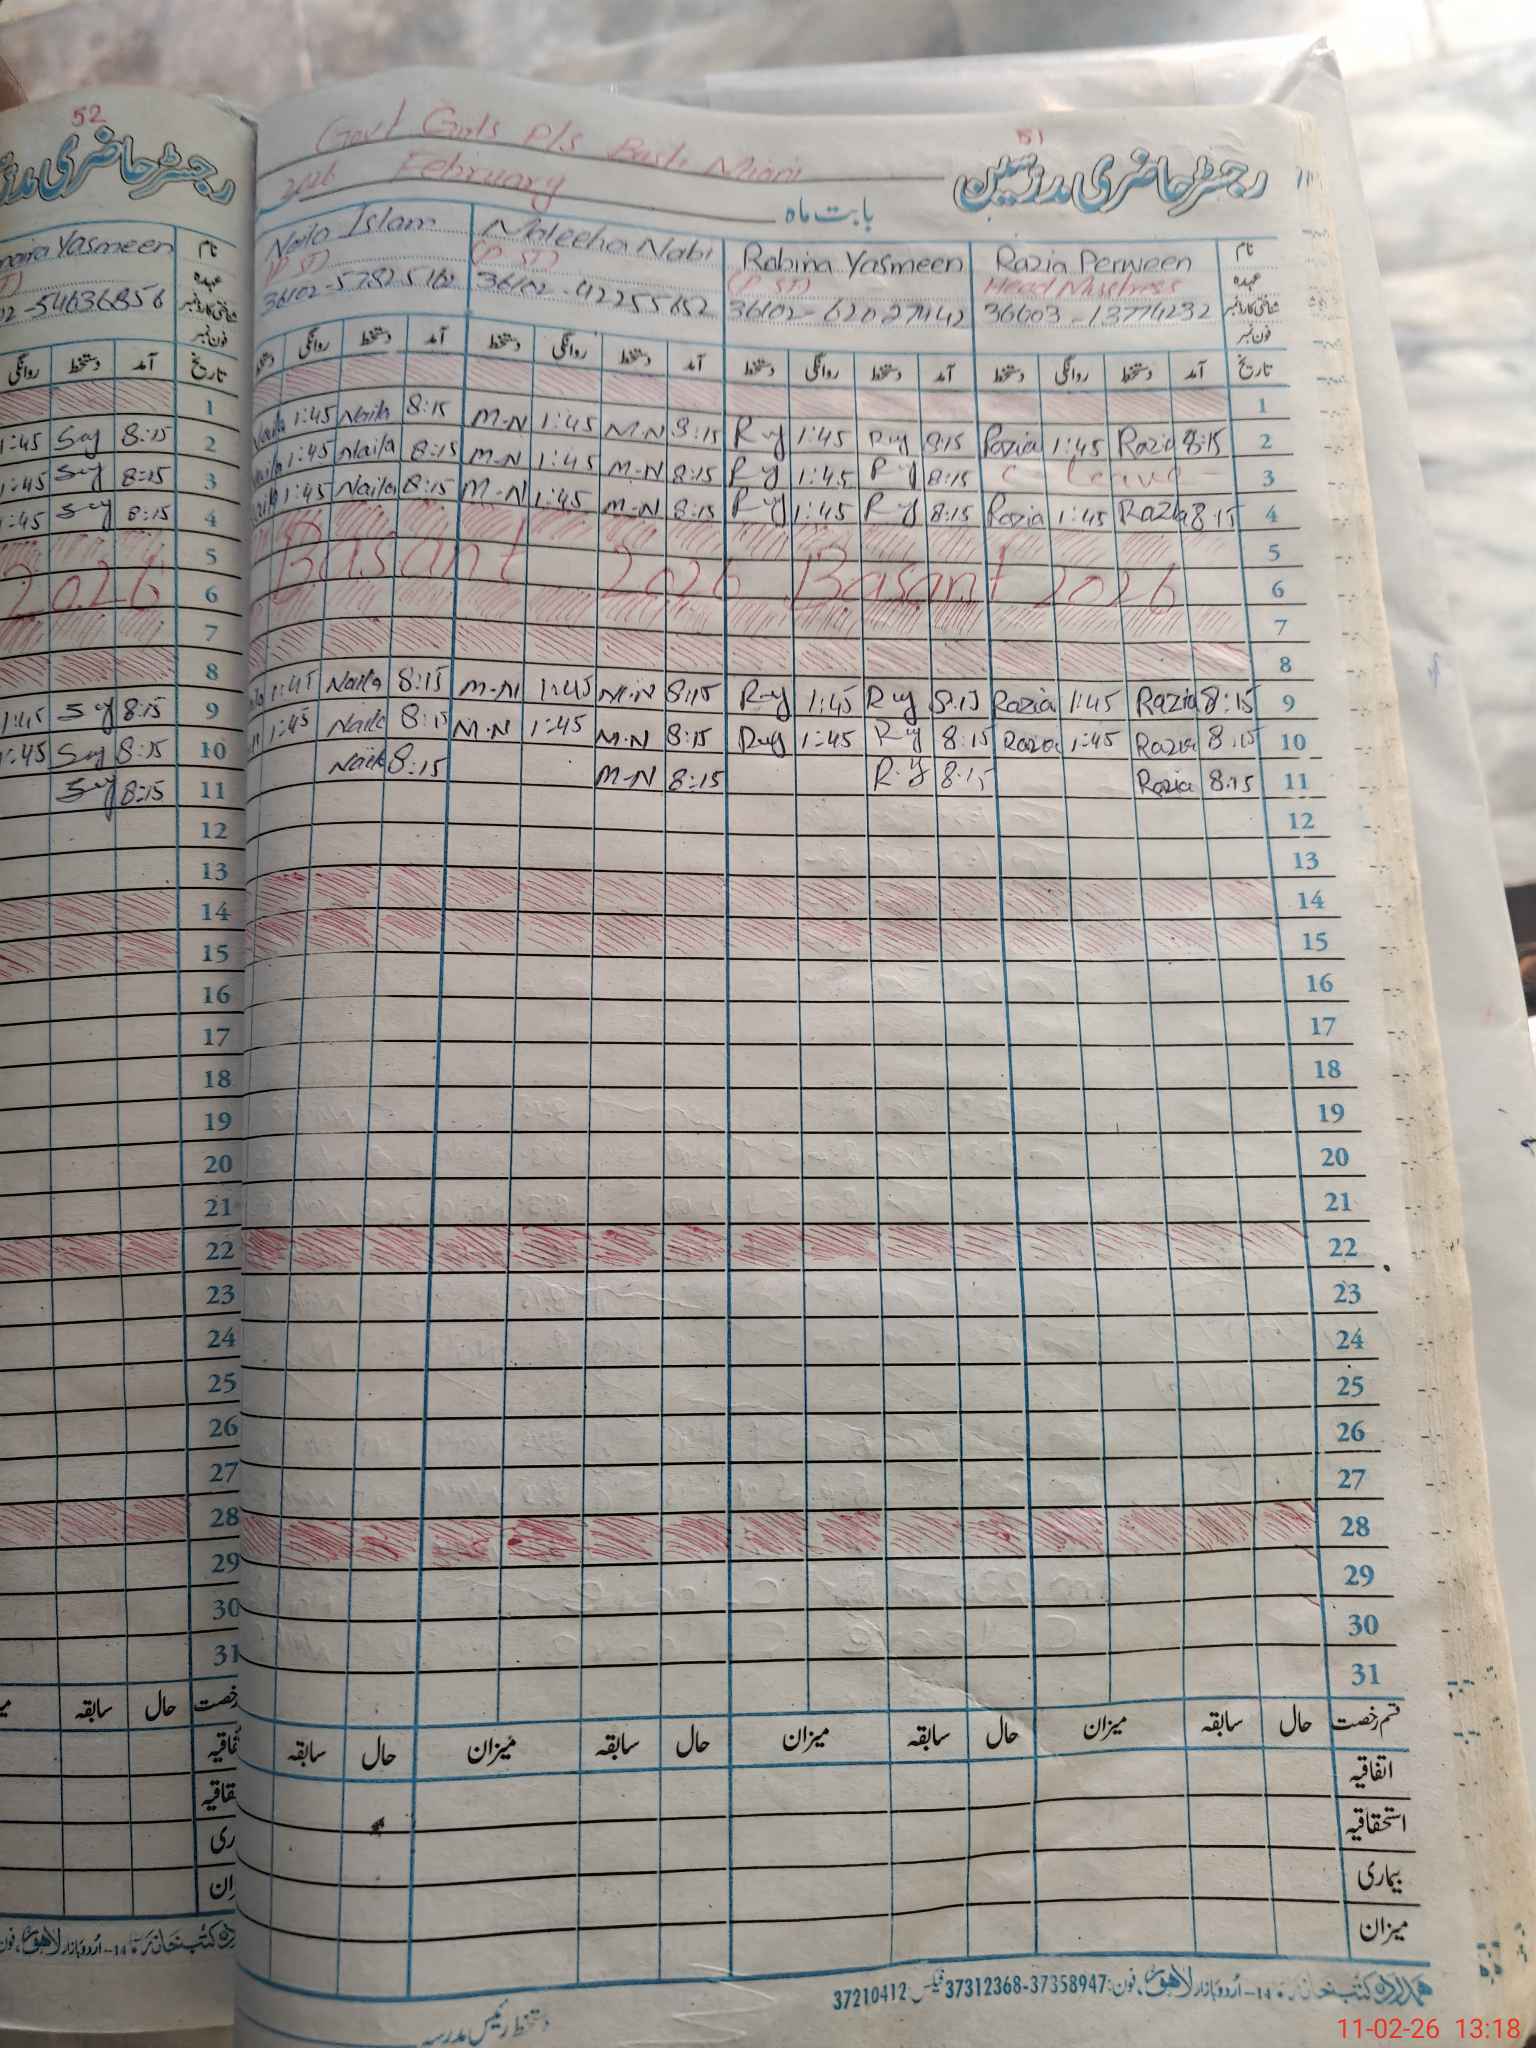 52
رجسٹر حاضری
Yasmeen
02-54636856
نام
عہدہ
شناختی کارڈ نمبر
فون نمبر
روانگی دستخط آمد تاریخ
1
1:45 Say 8:15 2
1:45 Say 8:15 3
1:45 Say 8:15 4
5
2026 6
7
8
1:45 Say 8:15 9
1:45 Say 8:15 10
Say 8:15 11
12
13
14
15
16
17
18
19
20
21
22
23
24
25
26
27
28
29
30
31
سابقہ حال
51
Govt Girls P/s Basti Miani
رجسٹر حاضری مدرسین
2026 February بابت ماہ
Naila Islam Maleeha Nabi Robina Yasmeen Razia Perween نام
(P ST) (P ST) (P ST) Head Mistress عہدہ
36102-57825162 36102-42255652 36102-62027442 36603-13774232 شناختی کارڈ نمبر
فون نمبر
دستخط روانگی دستخط آمد دستخط روانگی دستخط آمد دستخط روانگی دستخط آمد دستخط روانگی دستخط آمد تاریخ
1
Naila 1:45 Naila 8:15 M-N 1:45 M-N 8:15 R-y 1:45 R-y 8:15 Razia 1:45 Razia 8:15 2
Naila 1:45 Naila 8:15 M-N 1:45 M-N 8:15 R-y 1:45 R-y 8:15 C Leave 3
Naila 1:45 Naila 8:15 M-N 1:45 M-N 8:15 R-y 1:45 R-y 8:15 Razia 1:45 Razia 8:15 4
5
Basant 2026 Basant 2026 6
7
8
1:45 Naila 8:15 M-N 1:45 M-N 8:15 R-y 1:45 R-y 8:15 Razia 1:45 Razia 8:15 9
1:45 Naila 8:15 M-N 1:45 M-N 8:15 R-y 1:45 R-y 8:15 Razia 1:45 Razia 8:15 10
Naila 8:15 M-N 8:15 R-y 8:15 Razia 8:15 11
12
13
14
15
16
17
18
19
20
21
22
23
24
25
26
27
28
29
30
31
سابقہ حال میزان سابقہ حال میزان سابقہ حال میزان سابقہ حال قسم رخصت
اتفاقیہ
استحقاقیہ
بیماری
میزان
ہمدرد کتب خانہ 14-اردو بازار لاہور، فون: 37358947-37312368 فیکس: 37210412
دستخط رئیس مدرسہ
11-02-26 13:18